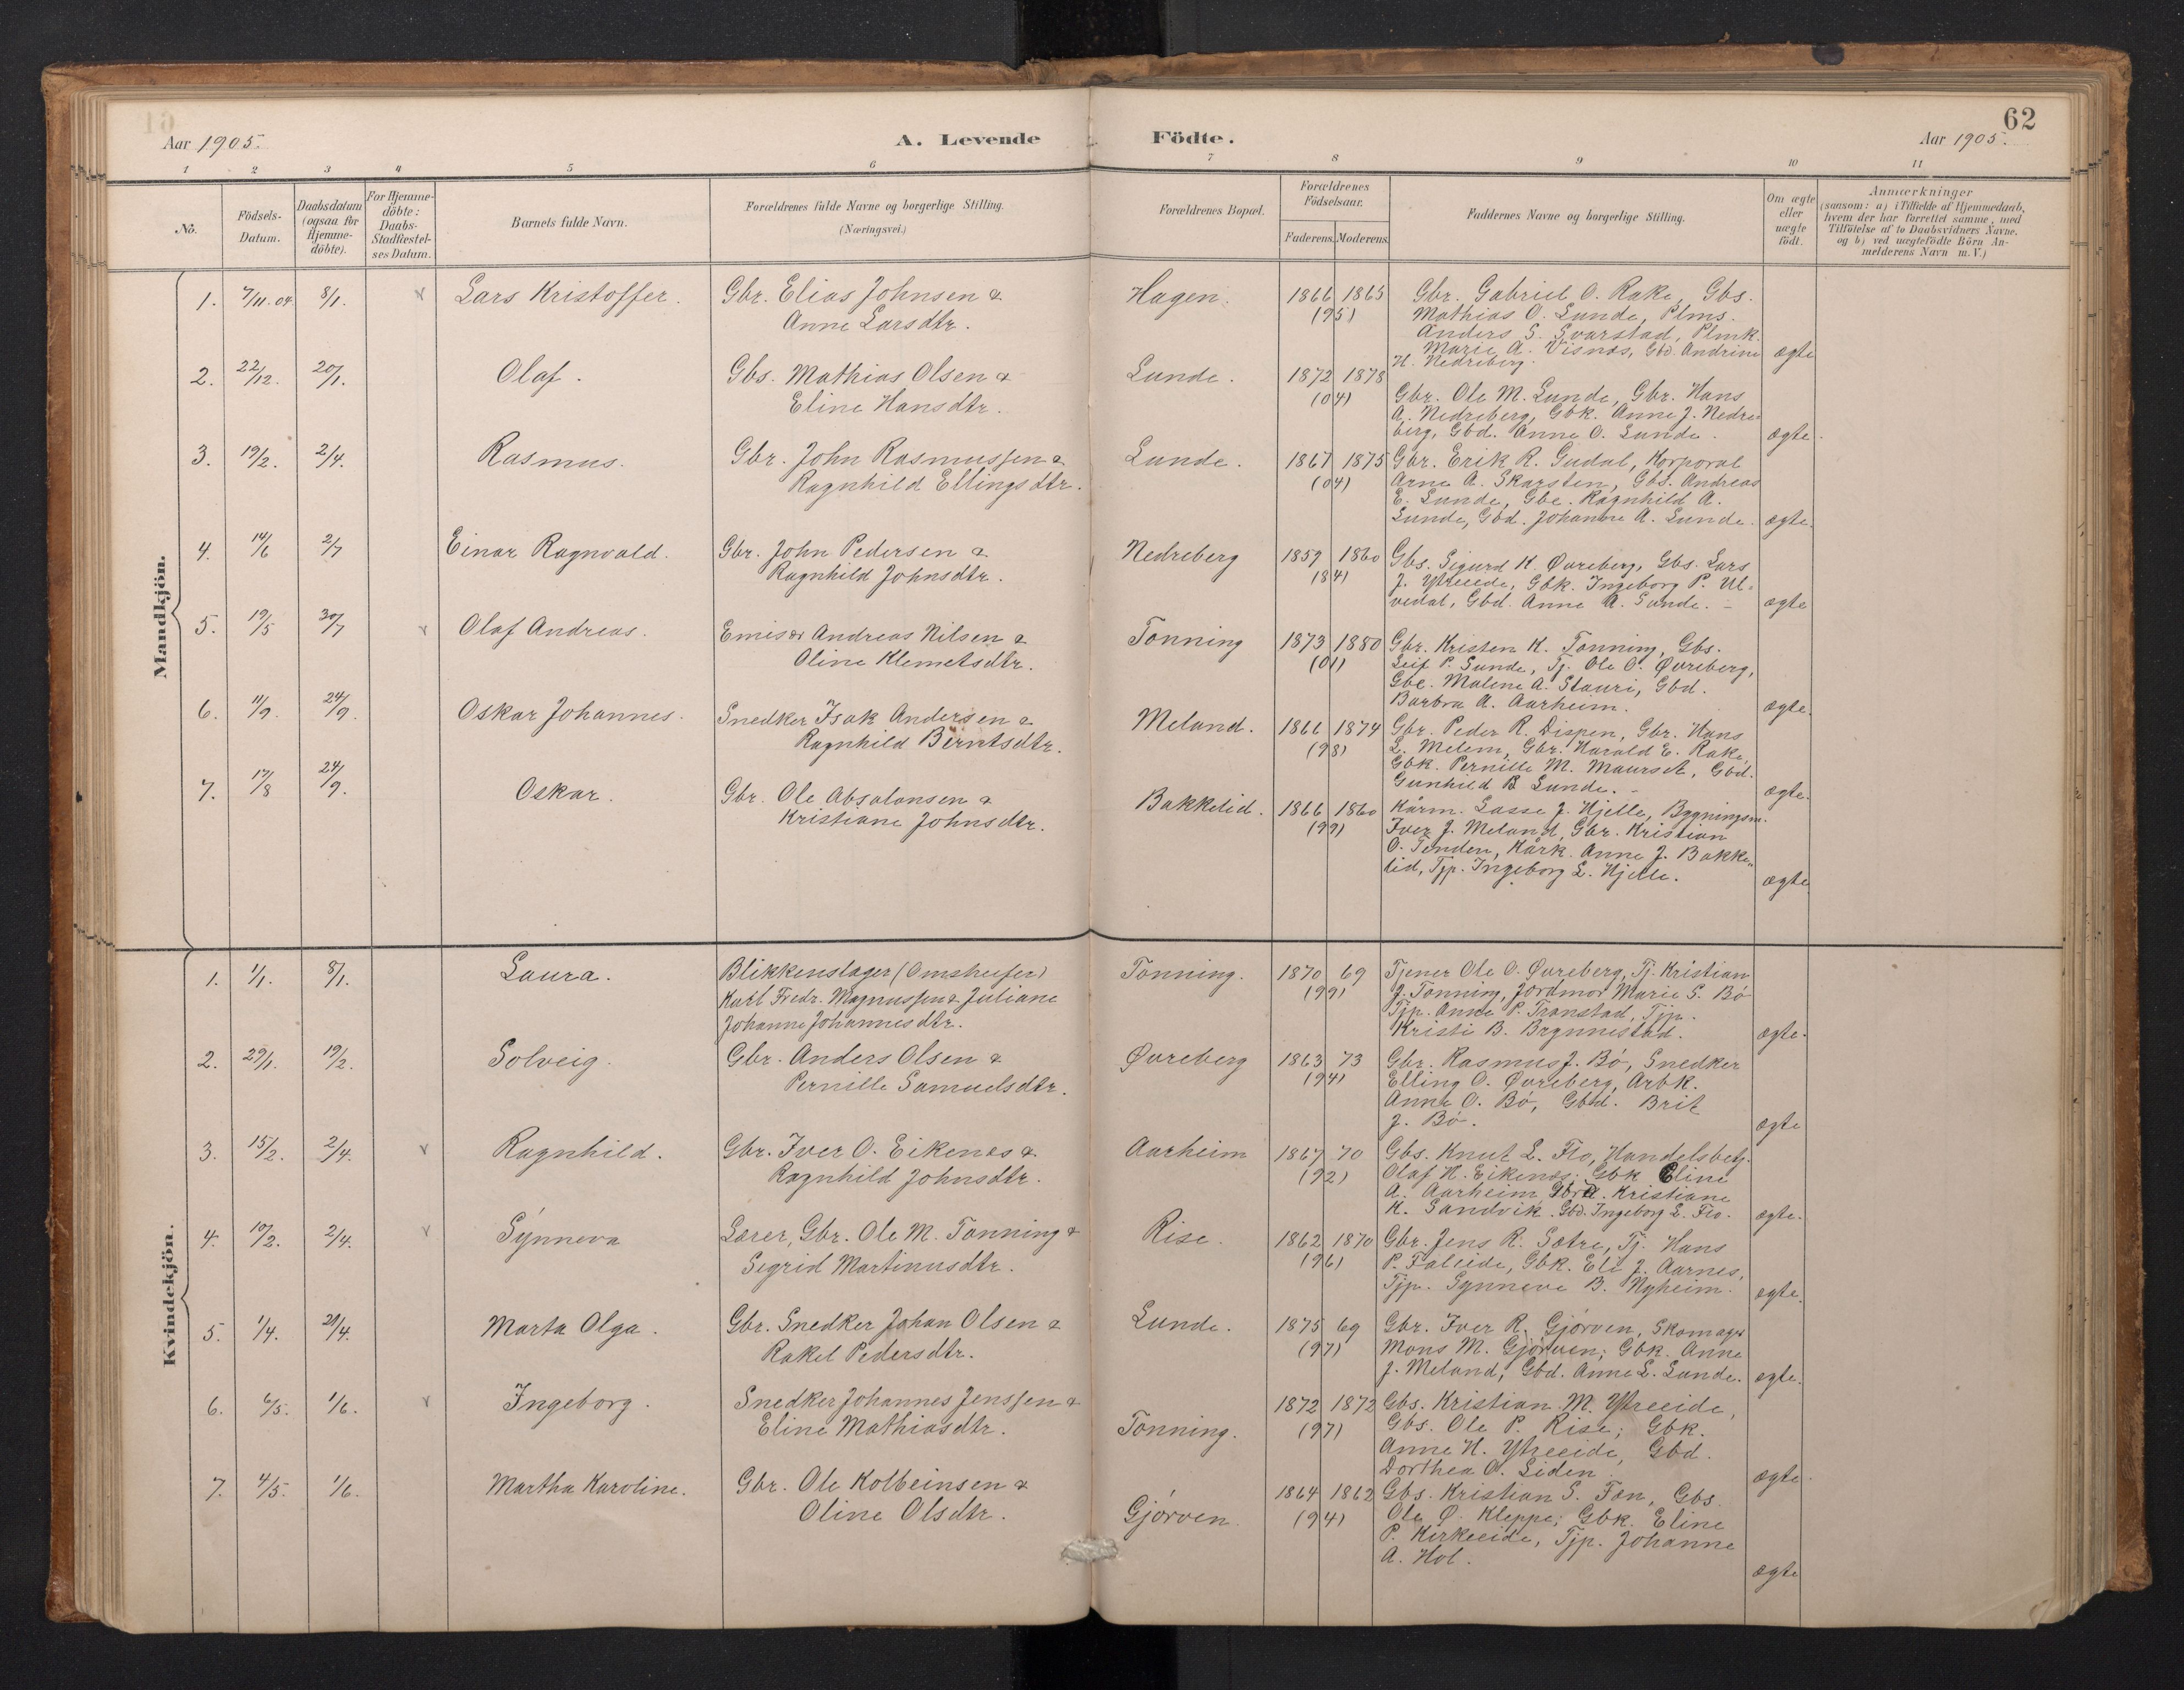 62
Aar 1905.
A. Levende
Födte.
Aar 1905.
1 2 3 4 5 6 7 8 9 10 11
No.
Födsels-Datum.
Daabsdatum (ogsaa for Hjemme-döbte).
For Hjemme-döbte: Daabs-Stadfæstel-ses Datum.
Barnets fulde Navn.
Forældrenes fulde Navne og borgerlige Stilling.
(Næringsvei.)
Forældrenes Bopæl.
Forældrenes Födselsaar.
Faderens. Moderens.
Faddernes Navne og borgerlige Stilling.
Om ægte eller uægte födt.
Anmærkninger
(saasom: a) i Tilfælde af Hjemmedaab,
hvem der har forrettet samme, med
Tilföielse af to Daabsvidners Navne.
og b) ved uægtefödte Börn An-
melderens Navn m.V.)
Mandkjön.
1. 7/11.04 8/1. v Lars Kristoffer. Gbr. Elias Johnsen & Hagen. 1866 1865 Gbr. Gabriel O. Rake, Gbs.
Anne Larsdtr. (95) Mathias O. Lunde, Plms.
Anders S. Svarstad, Plmk.
Marie A. Visnæs, Gbd. Andrine ægte
H. Nedreberg.
2. 22/12. 20/1. Olaf. Gbs. Mathias Olsen & Lunde. 1872 1878
Eline Hansdtr. (04) Gbr. Ole M. Lunde, Gbr. Hans
A. Nedreberg, Gbk. Anne J. Nedre-
berg, Gbd. Anne O. Lunde. ægte.
3. 19/2. 2/4. Rasmus. Gbr. John Rasmussen & Lunde. 1867 1875 Gbr. Erik R. Gudal, Korporal
Ragnhild Ellingsdtr. (04) Arne A. Skarsten, Gbs. Andreas
E. Lunde, Gbe. Ragnhild A.
Lunde, Gbd. Johanne A. Lunde. ægte.
4. 14/6 2/7 Einar Ragnvald. Gbr. John Pedersen & Nedreberg 1859 1860 Gbs. Sigurd K. Øvreberg, Gbs. Lars
Ragnhild Johnsdtr. (84) J. Ytreeide, Gbk. Ingeborg P. Ul-
vedal, Gbd. Anne A. Lunde. ægte
5. 19/5 30/7 v Olaf Andreas. Emisær Andreas Nilsen & Tonning 1873 1880 Gbr. Kristen K. Tonning, Gbs.
Oline Klemetsdtr. (01) Leif P. Lunde, Tj. Ole O. Øvreberg,
Gbe. Malene A. Stauri, Gbd.
Barbra A. Aarheim. ægte.
6. 11/9. 24/9. Oskar Johannes. Snedker Isak Andersen & Meland. 1866 1874 Gbr. Peder R. Dispen, Gbr. Hans
Ragnhild Berntsdtr. (98) L. Melem, Gbr. Harald E. Rake,
Gbk. Pernille M. Maurset, Gbd.
Gunhild B Lunde. ægte.
7. 17/8 24/9. Oskar. Gbr. Ole Absalonsen & Bakkelid. 1866 1860 Kårm. Lasse J. Hjelle, Bygningsm.
Kristiane Johnsdtr. (99) Iver J. Meland, Gbr. Kristian
O. Tenden, Kårk. Anne J. Bakke-
lid, Tjp. Ingeborg L. Hjelle. ægte
Kvindekjön.
1. 1/1. 8/1. Laura. Blikkenslager (Omstreifer) Tonning. 1870 69 Tjener Ole O. Øvreberg, Tj. Kristian
Karl Fredr. Magnussen & Juliane (99) J. Tonning, Jordmor Marie S. Bö
Johanne Johannesdtr. Tjp. Anne P. Transtad, Tjp.
Kristi B. Brynnestad. ægte.
2. 29/1. 19/2. Solveig. Gbr. Anders Olsen & Øvreberg 1863 73 Gbr. Rasmus J. Bö, Snedker
Pernille Samuelsdtr. (94) Elling O. Øvreberg, Arbk.
Anne O. Bö, Gbd. Brit
J. Bö. ægte
3. 15/2. 2/4. v Ragnhild. Gbr. Iver O. Eikenæs & Aarheim 1867 70 Gbs. Knut L. Flo, Handelsbetj.
Ragnhild Johnsdtr. (92) Olaf H. Eikenæs; Gbk Eline
A. Aarheim, Kristiane
K. Sandvik. Gbd. Ingeborg L. Flo. ægte.
4. 10/2. 2/4. v Synneva Lærer, Gbr. Ole M. Tonning & Rise. 1862 1870 Gbr. Jens R. Sætre, Tj. Hans
Sigrid Martinusdtr. (96) P. Faleide, Gbk. Eli J. Aarnes,
Tjp. Synneve B. Myheim. ægte.
5. 1/4. 21/4. Marta Olga. Gbr. Snedker Johan Olsen & Lunde. 1875 69 Gbr. Iver R. Gjørven, Skomager
Rakel Pedersdtr. (97) Mons M. Gjørven; Gbk. Anne
J. Meland, Gbd. Anne L. Lunde. ægte.
6. 6/5. 1/6. v Ingeborg. Snedker Johannes Jenssen & 1872 1872 Gbs. Kristian M. Ytreeide,
Eline Mathiasdtr. Tonning. (97) Gbs. Ole P. Rise; Gbk.
Anne H. Ytreeide, Gbd.
Dorthea O. Liden. ægte.
7. 4/5. 1/6. Martha Karoline. Gbr. Ole Kolbeinsen & 1864 1862 Gbs. Kristian S. Fon, Gbs.
Oline Olsdtr. Gjørven. (94) Ole Ø. Kleppe; Gbk. Eline
P. Kirkeeide, Tjp. Johanne
A. Hol. ægte